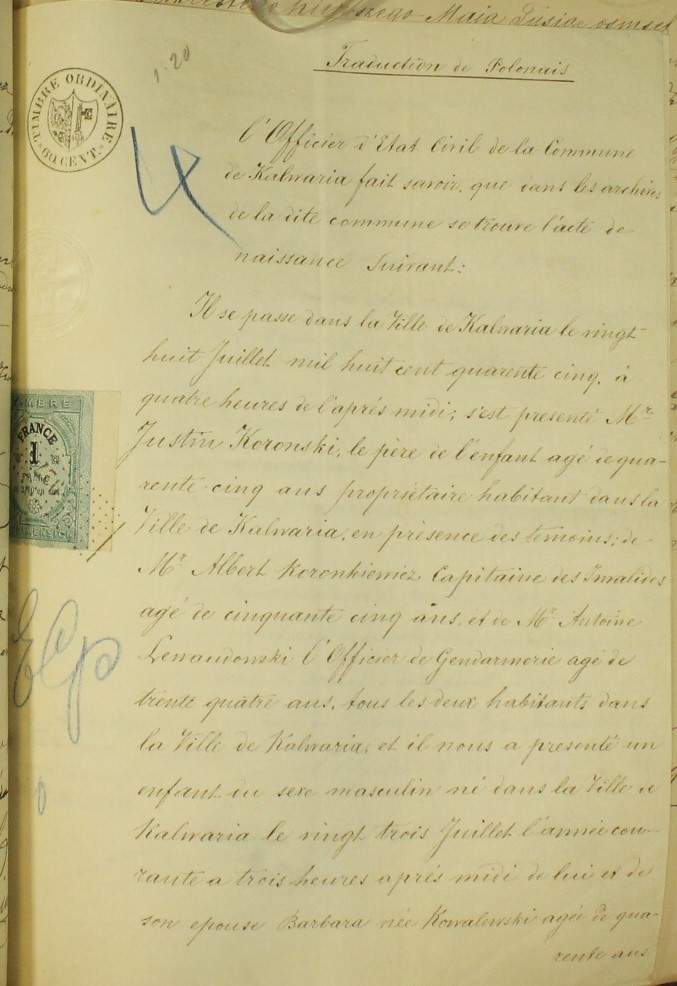 Maia Tysiąc osmset
Traduction de Polonais
1.20
TIMBRE ORDINAIRE
60 CENT.
l'Officier d'Etat Civil de la Commune
de Kalwaria fait savoir, que dans les archives
de la dite commune se trouve l'acte de
naissance suivant:
Il se passe dans la Ville de Kalwaria le vingt
huit Juillet mil huit cent quarente cinq, à
quatre heures de l'après midi; s'est presenté Mr
Justin Koronski, le père de l'enfant agé de qua-
rente cinq ans proprietaire habitant dans la
Ville de Kalwaria, en présence des temoins; de
Mr Albert Koronkiewicz Capitaine des Invalides
agé de cinquante cinq ans, et de Mr Antoine
Lewandowski l'Officier de Gendarmerie agé de
trente quatre ans, tous les deux habitants dans
la Ville de Kalwaria, et il nous a presenté un
enfant du sexe masculin né dans la Ville de
Kalwaria le vingt trois Juillet l'année cou-
rante a trois heures après midi de lui et de
son epouse Barbara née Kowalewski agée de qua-
rente ans
FRANCE
1